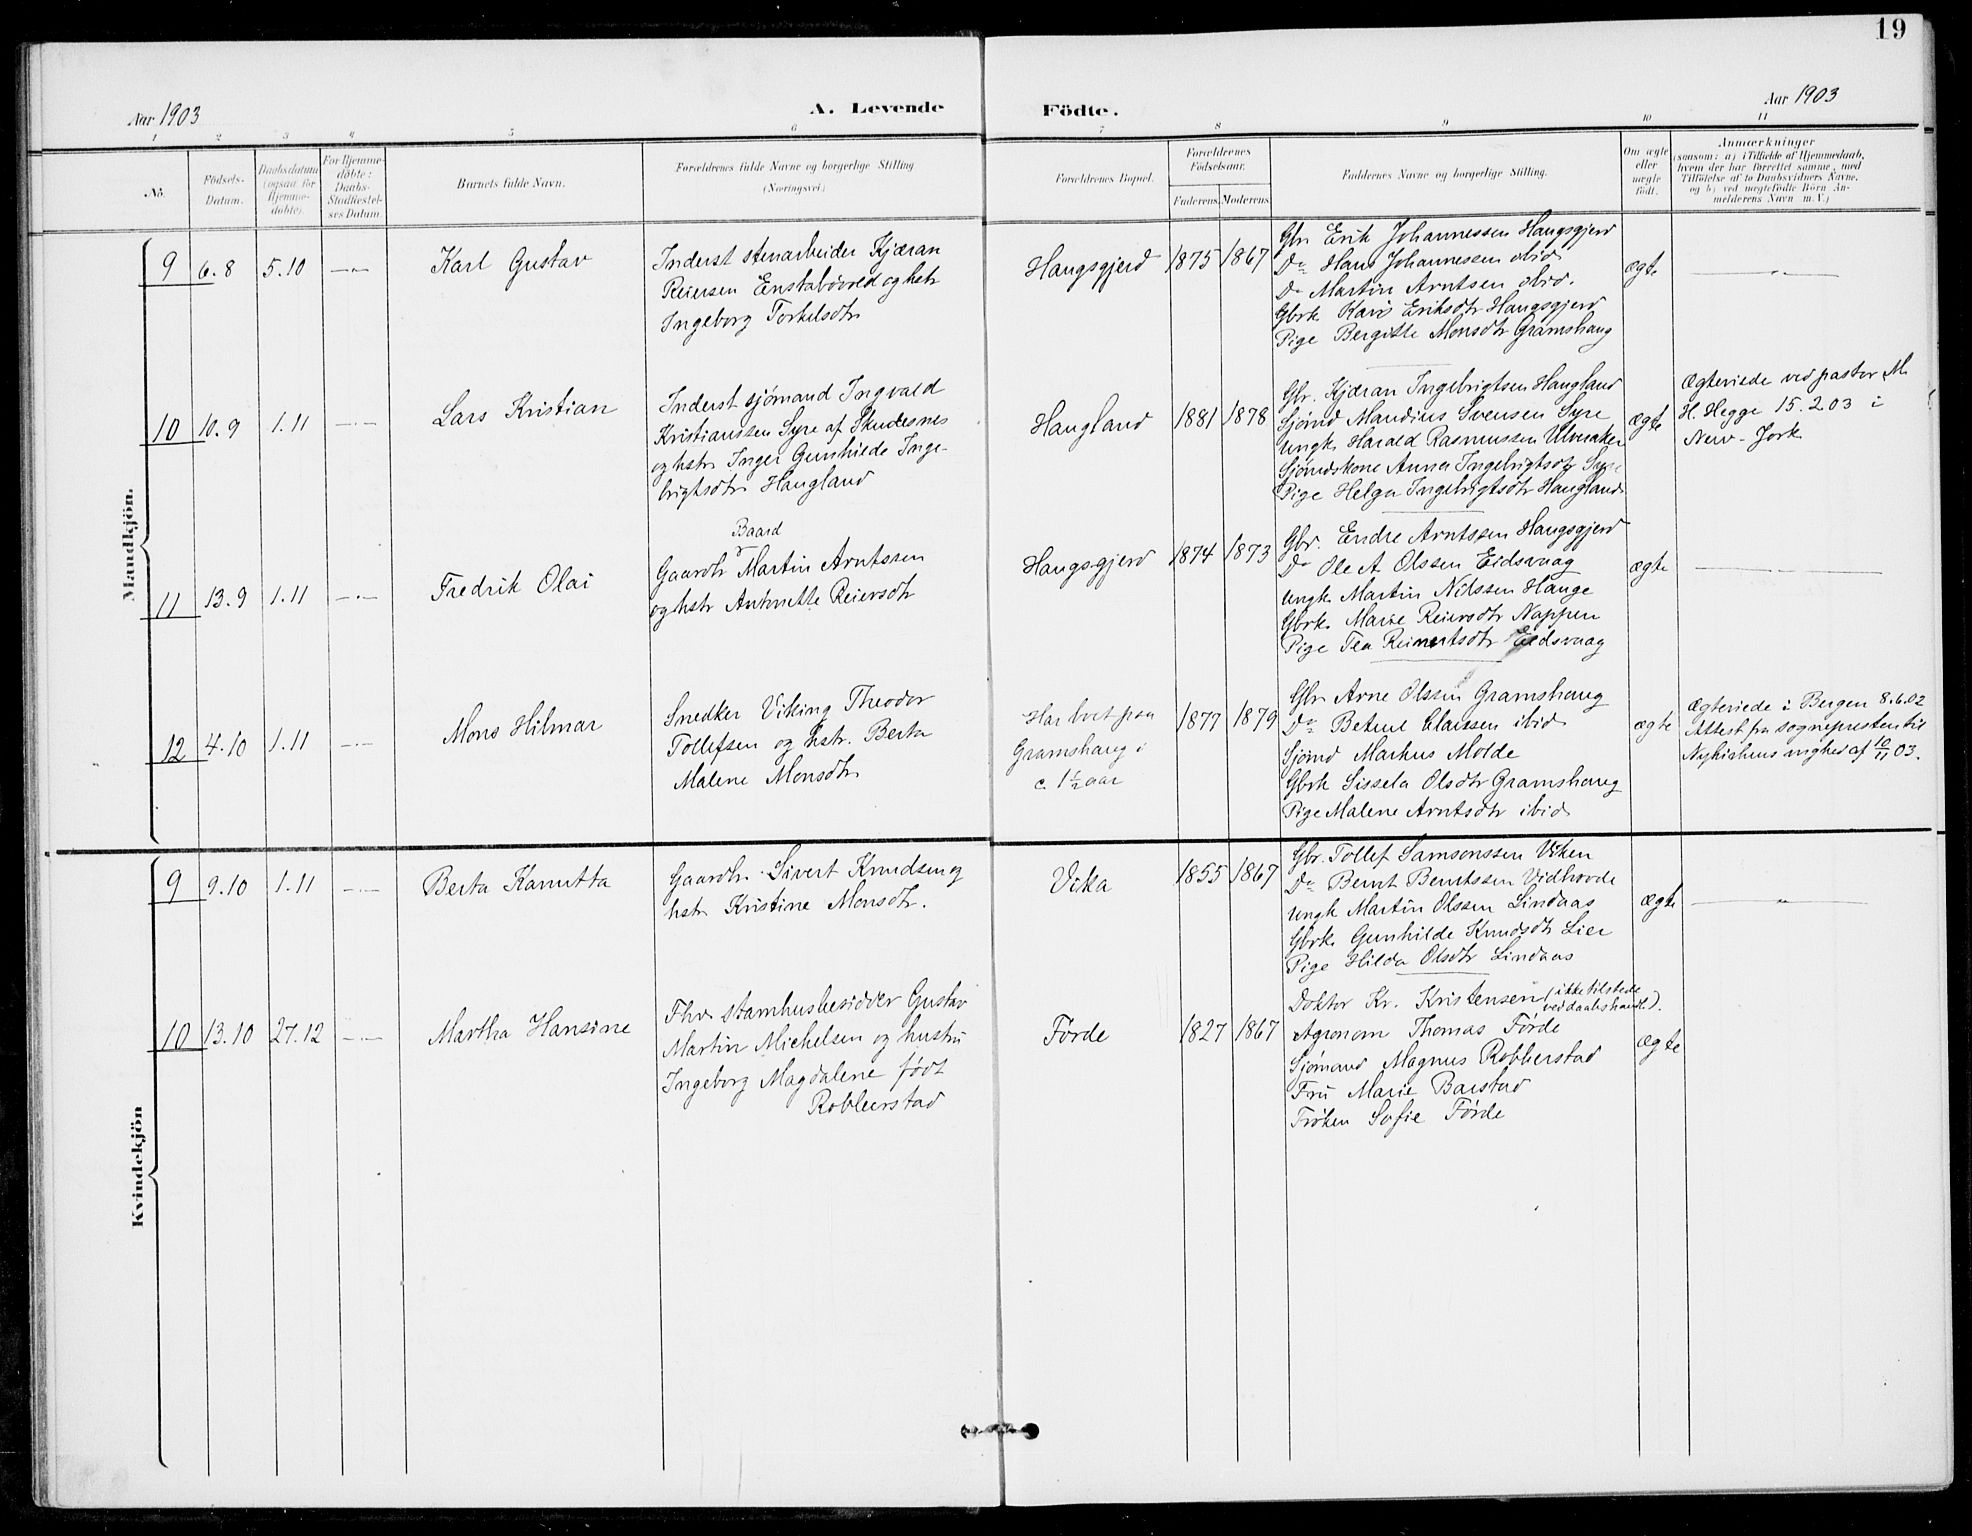 19
Aar 1903
A. Levende Födte.
Aar 1903
1 2 3 4 5 6 7 8 9 10 11
No.
Födsels-Datum.
Daabsdatum (ogsaa for Hjemme-döbte).
For Hjemme-döbte: Daabs-Stadfæstel-ses Datum
Barnets fulde Navn.
Forældrenes fulde Navne og borgerlige Stilling (Næringsvei.)
Forældrenes Bopæl.
Forældrenes Födselsaar.
Faderens. Moderens.
Faddernes Navne og borgerlige Stilling.
Om ægte eller uægte födt.
Anmærkninger
(saasom: a) i Tilfælde af Hjemmedaab,
hvem der har forrettet samme, med
Tilföielse af to Daabsvidners Navne.
og b) ved uægtefödte Börn An-
melderens Navn m. V.)
Mandkjön.
9 6.8 5.10 —"— Karl Gustav
Inderst stenarbeider Kjæran
Reiersen Enstabövold og hstr
Ingeborg Torkelsdtr
Haugsgjerd 1875 1867
Gbr Erik Johannessen Haugsgjerd
Do Hans Johannessen ibid
Do Martin Arntsen ibid.
Gbrk Kari Eriksdtr Haugsgjerd
Pige Bergitte Monsdtr Gramshaug
ægte —"—
10 10.9 1.11 —"— Lars Kristian
Inderst sjömand Ingvald
Kristianssen Syre af Skudesnes
og hstr Inger Gunhilde Inge-
brigtsdtr Haugland
Haugland 1881 1878
Gbr. Kjæran Ingebrigtsen Haugland
Sjömd Mandius Svensen Syre
Ungk. Harald Rasmussen Ulveraker
Sjömdskone Anna Ingebrigtsdtr Syre
Pige Helga Ingebrigtsdtr Haugland
ægte
Ægteviede ved pastor M.
H. Hegge 15.2.03 i
New-Jork
11 13.9 1.11 —"— Fredrik Olai
Baard
Gaardbr Martin Arntssen
og hstr Antonette Reiersdtr
Haugsgjerd 1874 1873
Gbr. Endre Arntssen Haugsgjerd
Do Ole A Olssen Eidsvaag
Ungk. Martin Nilssen Hauge
Gbrk. Marie Reiersdtr Nappen
Pige Tea Reinertsdtr Eidsvaag
ægte —"—
12 4.10 1.11 —"— Mons Hilmar
Snedker Viking Theodor
Tollefsen og hstr. Berta
Malene Monsdtr
Har boet paa
Gramshaug i
c. 1½ aar
1877 1879
Gbr Arne Olssen Gramshaug
Do Betuel Claissen ibid
Sjömd Markus Molde
Gbrk Sissela Olsdtr Gramshaug
Pige Malene Arntsdtr ibid
ægte
Ægteviede i Bergen 8.6.02
Attest fra sognepresten til
Nykirkens mghed af 10/11 03.
Kvindekjön
9 9.10 1.11 —"— Berta Kanutta
Gaardbr. Sivert Knudsen og
hstr Kristine Monsdtr.
Vika 1855 1867
Gbr. Tollef Samsonssen Viken
Do Bernt Berntssen Vidhovde
Ungk Martin Olssen Lindaas
Gbrk. Gunhilde Knudsdtr Lier
Pige Hilda Olsdtr Lindaas
ægte —"—
10 13.10 27.12 —"— Martha Hansine
Fhv. stamhusbesidder Gustav
Martin Michelsen og hustru
Ingeborg Magdalene født
Robberstad
Förde 1827 1867
Doktor Kr. Kristensen (ikke tilstede
ved daabshandl.).
Agronom Thomas Förde
Sjömand Magnus Robberstad
Fru Marie Barstad
Frøken Sofie Förde
ægte